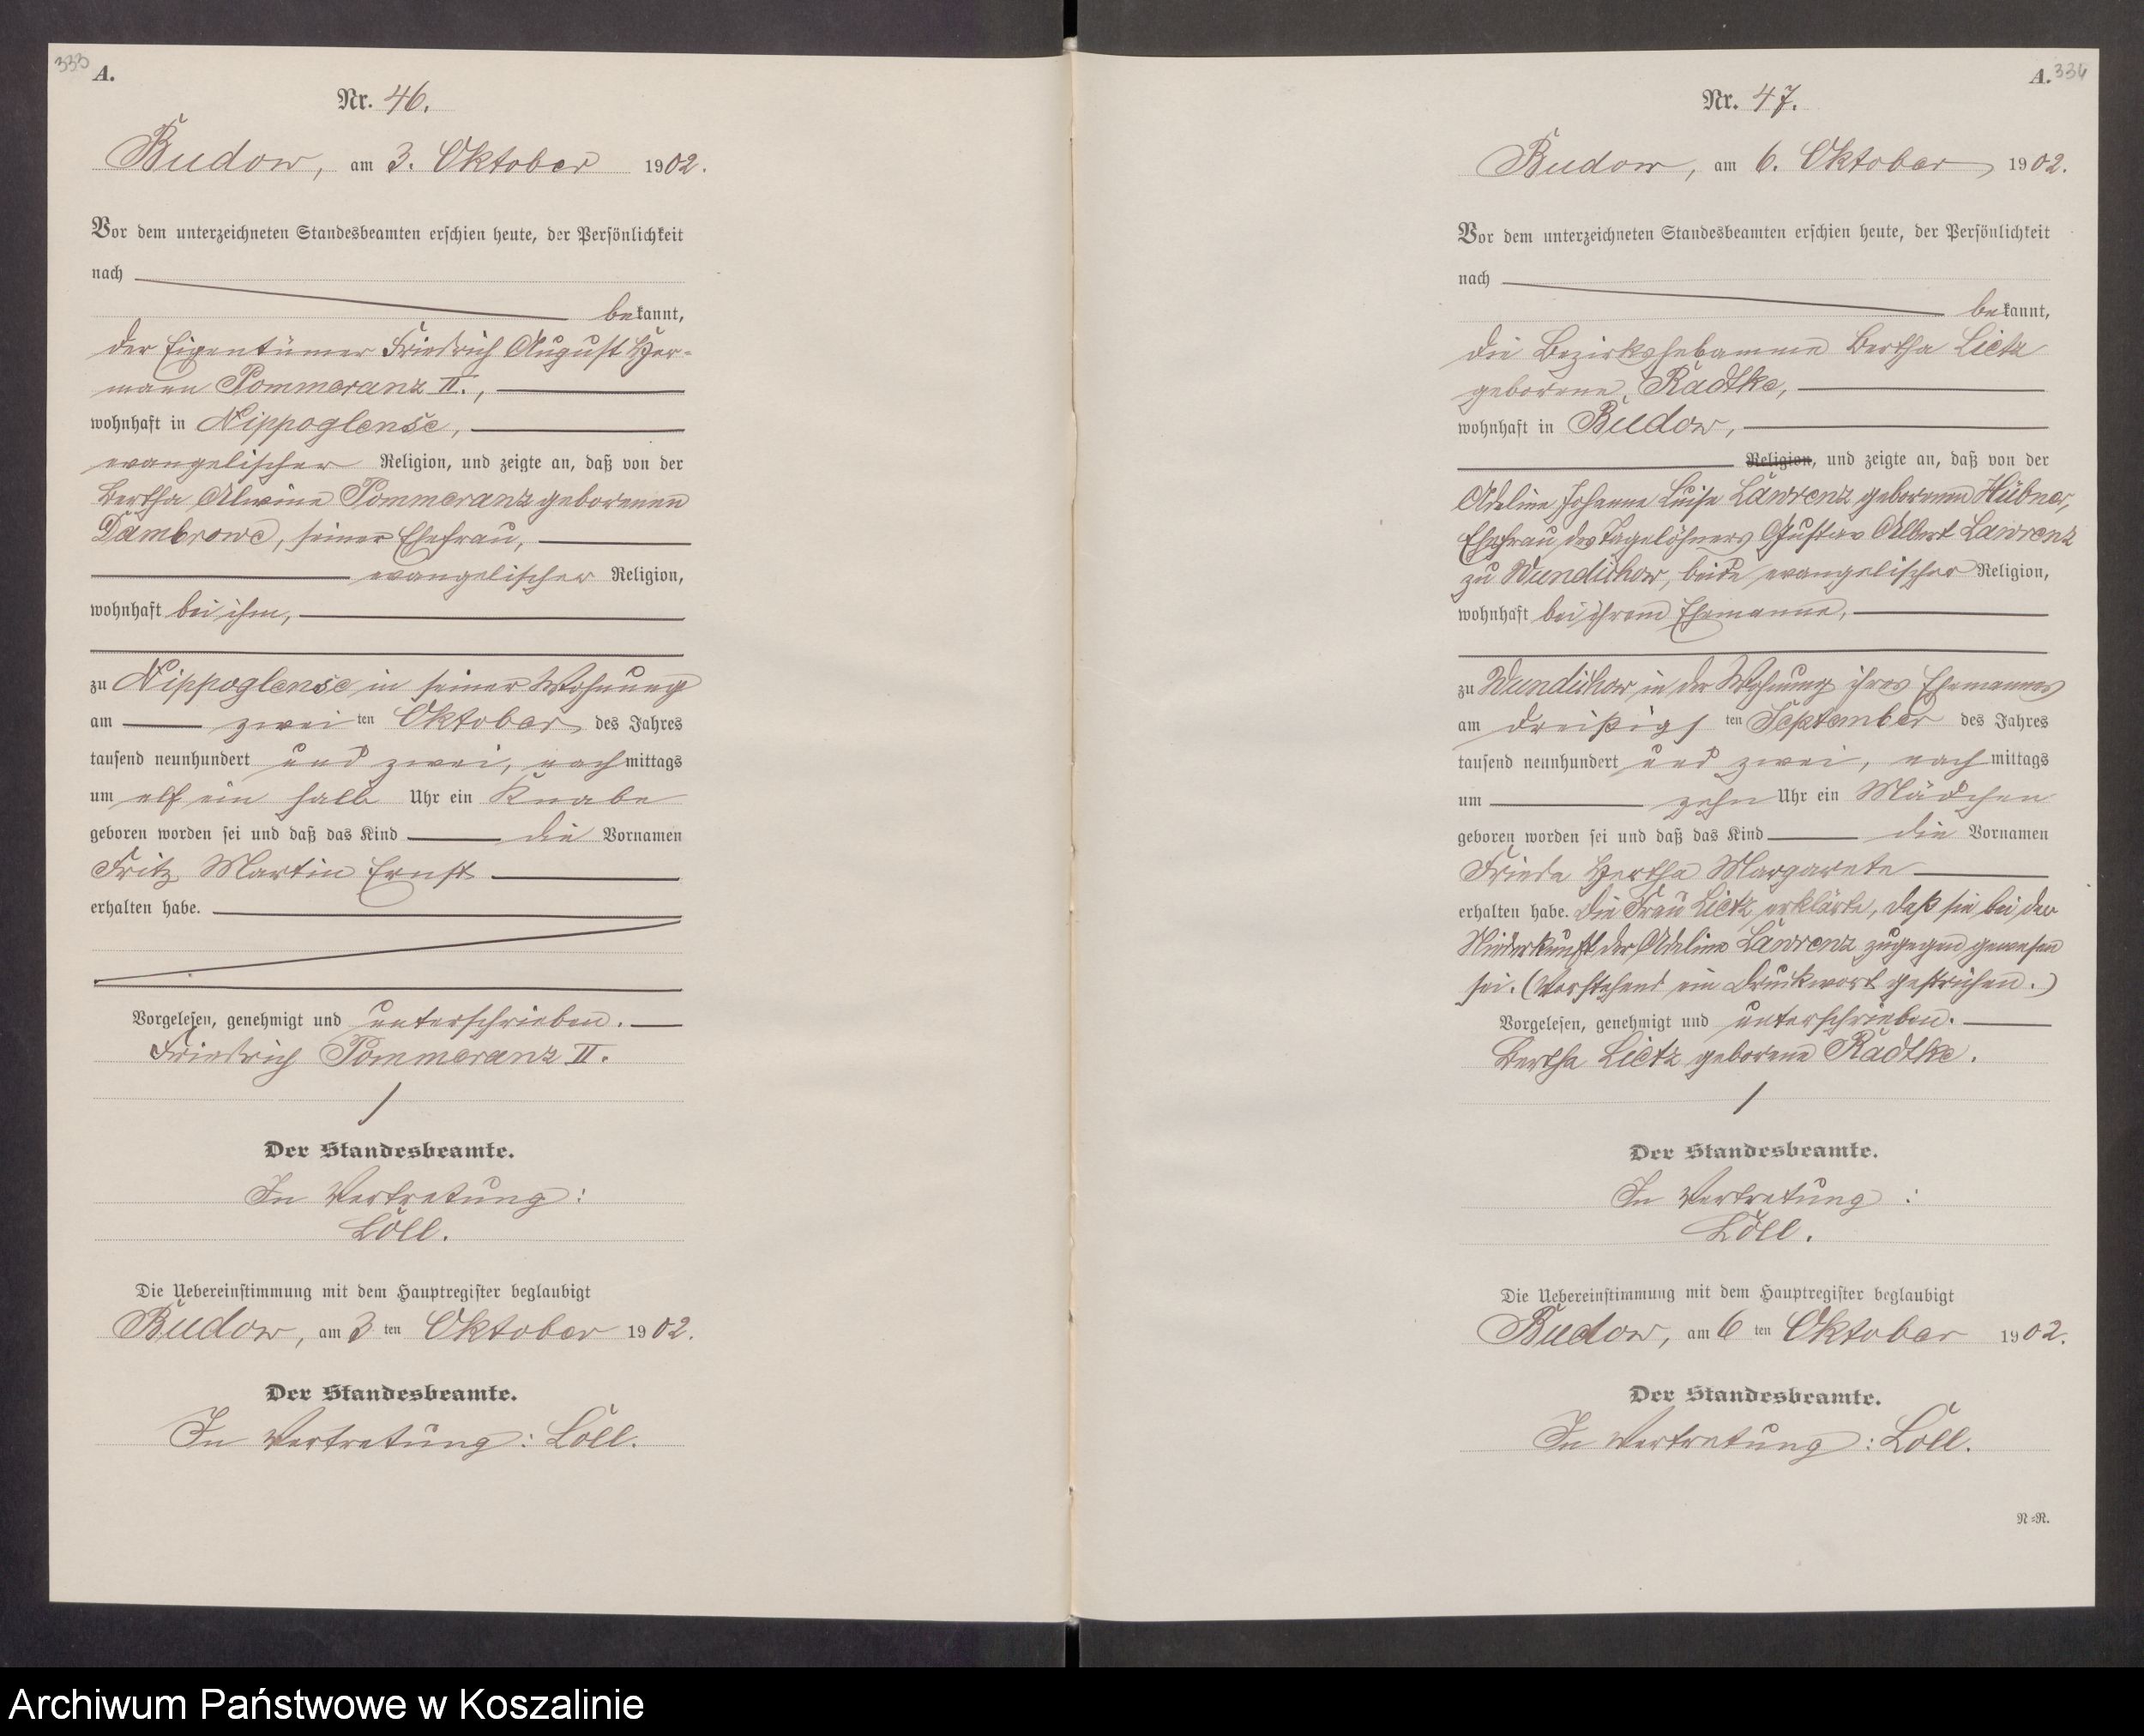 333
A.
Nr. 46.
Budow, am 3. Oktober 1902.
Vor dem unterzeichneten Standesbeamten erschien heute, der Persönlichkeit
nach
bekannt,
der Eigentümer Friedrich August Her-
mann Pommeranz II.,
wohnhaft in Nippoglense,
evangelischer Religion, und zeigte an, daß von der
Bertha Alwine Pommeranz geborenen
Dambrowe, seiner Ehefrau,
evangelischer Religion,
wohnhaft bei ihm,
zu Nippoglense in seiner Wohnung
am zweiten Oktober des Jahres
tausend neunhundert und zwei, nachmittags
um elf ein halb Uhr ein Knabe
geboren worden sei und daß das Kind die Vornamen
Fritz Martin Ernst
erhalten habe.
Vorgelesen, genehmigt und unterschrieben.
Friedrich Pommeranz II.
Der Standesbeamte.
In Vertretung:
Löll.
Die Uebereinstimmung mit dem Hauptregister beglaubigt
Budow, am 3ten Oktober 1902.
Der Standesbeamte.
In Vertretung: Löll.
A. 334
Nr. 47.
Budow, am 6. Oktober 1902.
Vor dem unterzeichneten Standesbeamten erschien heute, der Persönlichkeit
nach
bekannt,
die Bezirkshebamme Bertha Lietz
geborene Radtke,
wohnhaft in Budow,
Religion, und zeigte an, daß von der
Adeline Johanne Luise Lawrenz geborenen Hübner,
Ehefrau des Tagelöhners Gustav Albert Lawrenz
zu Wundichow, beide evangelischer Religion,
wohnhaft bei ihrem Ehemanne,
zu Wundichow in der Wohnung ihres Ehemannes
am dreißigsten September des Jahres
tausend neunhundert und zwei, nachmittags
um zehn Uhr ein Mädchen
geboren worden sei und daß das Kind die Vornamen
Frieda Hertha Margarete
erhalten habe. Die Frau Lietz erklärte, daß sie bei der
Niederkunft der Adeline Lawrenz zugegen gewesen
sei. (Vorstehend ein Druckwort gestrichen.)
Vorgelesen, genehmigt und unterschrieben.
Bertha Lietz geborene Radtke.
Der Standesbeamte.
In Vertretung:
Löll.
Die Uebereinstimmung mit dem Hauptregister beglaubigt
Budow, am 6ten Oktober 1902.
Der Standesbeamte.
In Vertretung: Löll.
N=R.
Archiwum Państwowe w Koszalinie